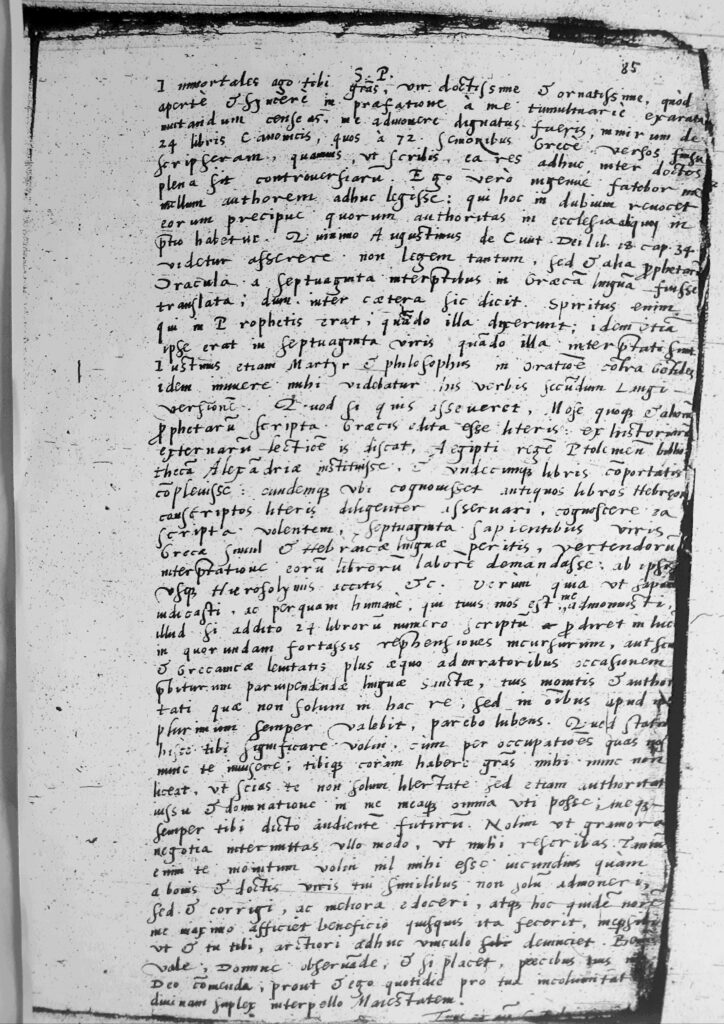 85
S. P.
Immortales ago tibi grãs, vir doctissime & ornatissime, quòd
aperte & syncere in præfatione à me tumultuariè exarata
mutandum censeas, me admonere dignatus fueris, nimirum de
24 libris Canonicis, quos à 72 senioribus Grecè versos fuisse
scripseram, quamuis, ut scribis, ea res adhuc inter doctos
plena sit controversiarũ. Ego verò ingenue fatebor me
nullum authorem adhuc legisse: qui hoc in dubium revocet
eorum precipue quorum authoritas in ecclesia aliquo in
p̃tio habetur. Quinimo Augustinus de Civit. Dei lib. 18 cap. 34
videtur asserere non legem tantum, sed & alia prophetarũ
Oracula a septuaginta interp̃tibus in Græcã linguã fuisse
translata; dum inter cætera sic dicit. Spiritus enim
qui in Prophetis erat, quãdo illa dixerunt; idem etiã
ipse erat in septuaginta viris quãdo illa interp̃tati sunt
Iustinus etiam Martyr & philosophus in oratione cõtra Gentiles
idem innuere mihi videbatur his verbis secundum Langi
versionẽ. Quod si quis asseveret, Mose quoq & aliorũ
prophetarũ scripta Græcis edita esse literis: ex historiarũ
externarũ lectiõe is discat, Aegipti regẽ Ptolemeũ biblio
thecã Alexãdriæ instituisse, & undecumq libris cõportatis
cõplevisse: eundemq ubi cognovisset antiquos libros Hebreorũ
conscriptos literis diligenter asservari, cognoscere ea
scripta volentem, septuaginta sapientibus viris
Grecæ simul & Hebraicæ linguæ peritis, vertendorũ
interp̃tatione eorũ librorũ laborẽ demandasse: ab ipsis
usq Hierosolymis accitis &c. Verum quia ut sapienter
iudicasti, ac perquam humanè, qui tuus mos est, me admonuisti,
illud si addito 24 librorũ numero scriptũ prodiret in lucẽ
in quorundam fortassis reprehensiones incursurum, aut seu
& Grecanicæ levitatis plus æquo admiratoribus occasionem
p̃biturum parvipendendæ linguæ sanctæ, tuis monitis & authori
tati quæ non solum in hac re, sed in oĩbus apud me
plurimum semper valebit, parebo lubens. Quod statim
hisce tibi significare volui, cum per occupatiões quas
nunc te invisere, tibiq coràm habere grãs mihi nunc non
liceat, ut scias te non solum libertate sed etiam authoritate
iussu & dominatione in me meaq omnia uti posse; meq
semper tibi dicto audientẽ futurũ. Nolim ut graviora
negotia intermittas ullo modo, ut mihi rescribas. Tantũ
enim te monitum volui nil mihi esse iucundius quam
a bonis & doctis viris tui similibus non solũ admoneri,
sed & corrigi, ac meliora edoceri, atq hoc quidẽ
me maximo afficiet beneficio quisquis ita fecerit, meq sibi
ut & tu tibi, arctiori adhuc vinculo devinciet. Bene
vale, Domine observãde, & si placet, precibus tuis me
Deo cõmẽda, prout & ego quotidie pro tua incolumitate
divinam suplex interpello Maiestatem.